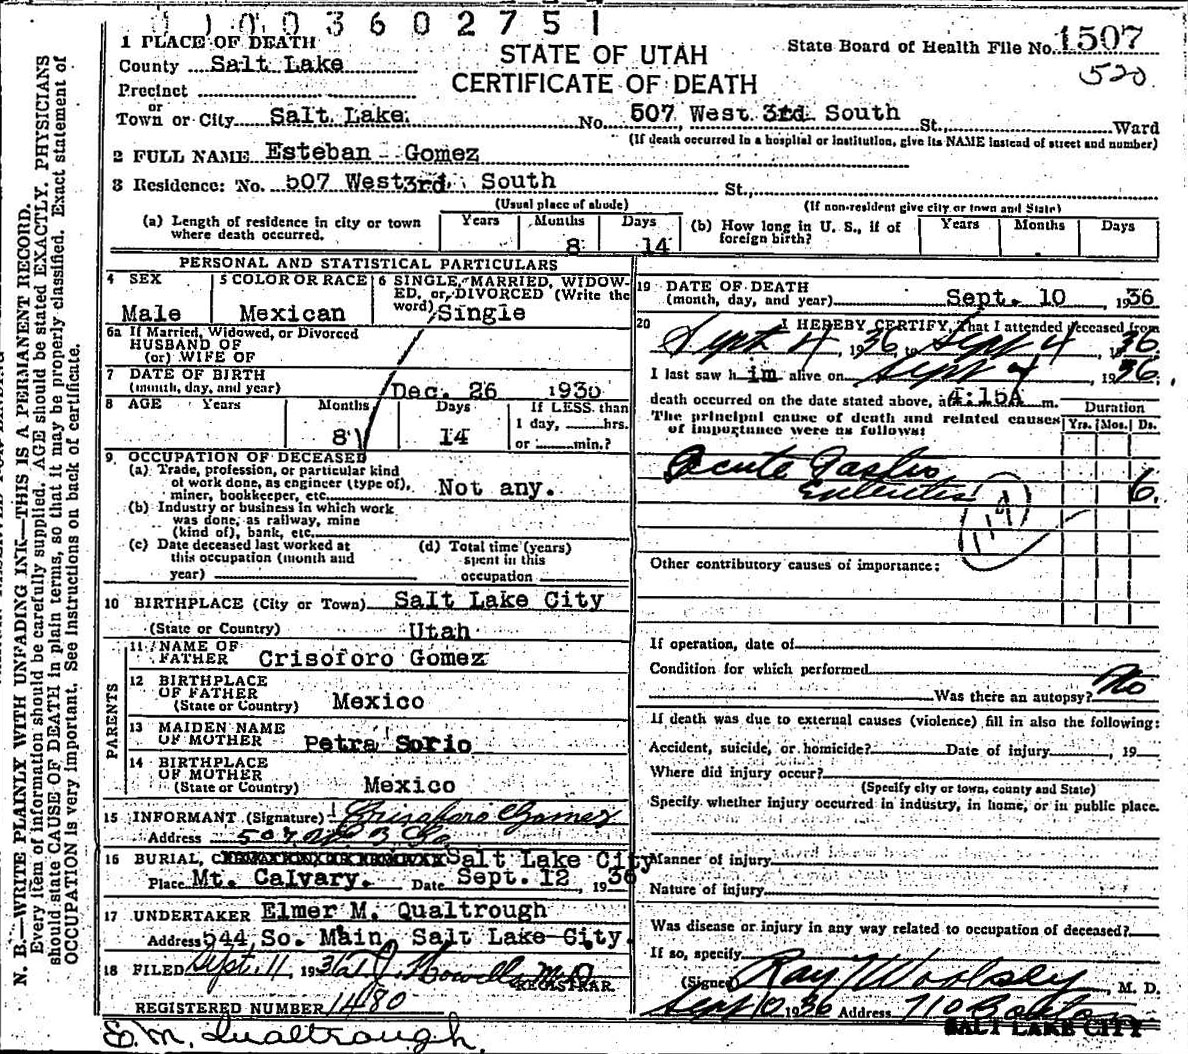 1003602751
1 PLACE OF DEATH
STATE OF UTAH
CERTIFICATE OF DEATH
State Board of Health File No. 1507
520
County Salt Lake
Precinct
or
Town or City Salt Lake No. 507 West 3rd South St., Ward
(If death occurred in a hospital or institution, give its NAME instead of street and number)
2 FULL NAME Esteban Gomez
3 Residence: No. 507 West 3rd South St.,
(Usual place of abode) (If non-resident give city or town and State)
(a) Length of residence in city or town where death occurred. Years Months 8 Days 14
(b) How long in U. S., if of foreign birth? Years Months Days
PERSONAL AND STATISTICAL PARTICULARS
4 SEX Male
5 COLOR OR RACE Mexican
6 SINGLE, MARRIED, WIDOWED, or DIVORCED (Write the word) Single
6a If Married, Widowed, or Divorced
HUSBAND OF
(or) WIFE OF
7 DATE OF BIRTH
(month, day, and year) Dec. 26 1930
8 AGE Years Months 8 Days 14
If LESS than
1 day, hrs.
or min.?
9 OCCUPATION OF DECEASED
(a) Trade, profession, or particular kind
of work done, as engineer (type of),
miner, bookkeeper, etc. Not any.
(b) Industry or business in which work
was done, as railway, mine
(kind of), bank, etc.
(c) Date deceased last worked at
this occupation (month and
year)
(d) Total time (years)
spent in this
occupation
10 BIRTHPLACE (City or Town) Salt Lake City
(State or Country) Utah
PARENTS
11 NAME OF
FATHER Crisoforo Gomez
12 BIRTHPLACE
OF FATHER
(State or Country) Mexico
13 MAIDEN NAME
OF MOTHER Petra Sorio
14 BIRTHPLACE
OF MOTHER
(State or Country) Mexico
15 INFORMANT (Signature) Crisoforo Gomez
Address 507 W 3 So
16 BURIAL, Salt Lake City
Place Mt. Calvary. Date Sept. 12, 1936
17 UNDERTAKER Elmer M. Qualtrough
Address 544 So. Main Salt Lake City.
18 FILED Sept. 11, 1936 Howells M.D.
REGISTRAR.
REGISTERED NUMBER 1480
E. M. Qualtrough.
19 DATE OF DEATH
(month, day, and year) Sept. 10, 1936
20 I HEREBY CERTIFY, That I attended deceased from
Sept 4, 1936, to Sept 4, 1936.
I last saw him alive on Sept 4, 1936.
death occurred on the date stated above, at 4:15A m.
The principal cause of death and related causes
of importance were as follows:
Duration
Yrs. Mos. Ds.
Acute Gastro
Enteritis 6.
119
Other contributory causes of importance:
If operation, date of
Condition for which performed
Was there an autopsy? No
If death was due to external causes (violence) fill in also the following:
Accident, suicide, or homicide? Date of injury , 19
Where did injury occur?
(Specify city or town, county and State)
Specify whether injury occurred in industry, in home, or in public place.
Manner of injury
Nature of injury
Was disease or injury in any way related to occupation of deceased?
If so, specify
(Signed) Ray T Woolsey, M. D.
Sept 10 1936 Address 710 Boston
SALT LAKE CITY
N. B.—WRITE PLAINLY WITH UNFADING INK—THIS IS A PERMANENT RECORD.
Every item of information should be carefully supplied. AGE should be stated EXACTLY. PHYSICIANS
should state CAUSE OF DEATH in plain terms, so that it may be properly classified. Exact statement of
OCCUPATION is very important. See instructions on back of certificate.